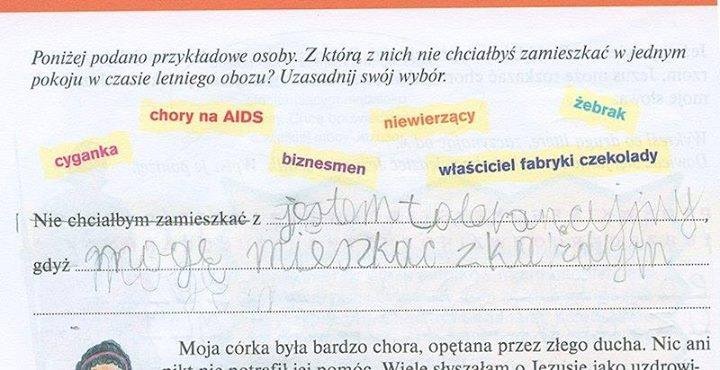 Poniżej podano przykładowe osoby. Z którą z nich nie chciałbyś zamieszkać w jednym
pokoju w czasie letniego obozu? Uzasadnij swój wybór.
chory na AIDS
niewierzący
żebrak
cyganka
biznesmen
właściciel fabryki czekolady
Nie chciałbym zamieszkać z jestem tolerancyjny,
gdyż mogę mieszkać z każdym
Moja córka była bardzo chora, opętana przez złego ducha. Nic ani
nikt nie potrafił jej pomóc. Wiele słyszałam o Jezusie jako uzdrowi-